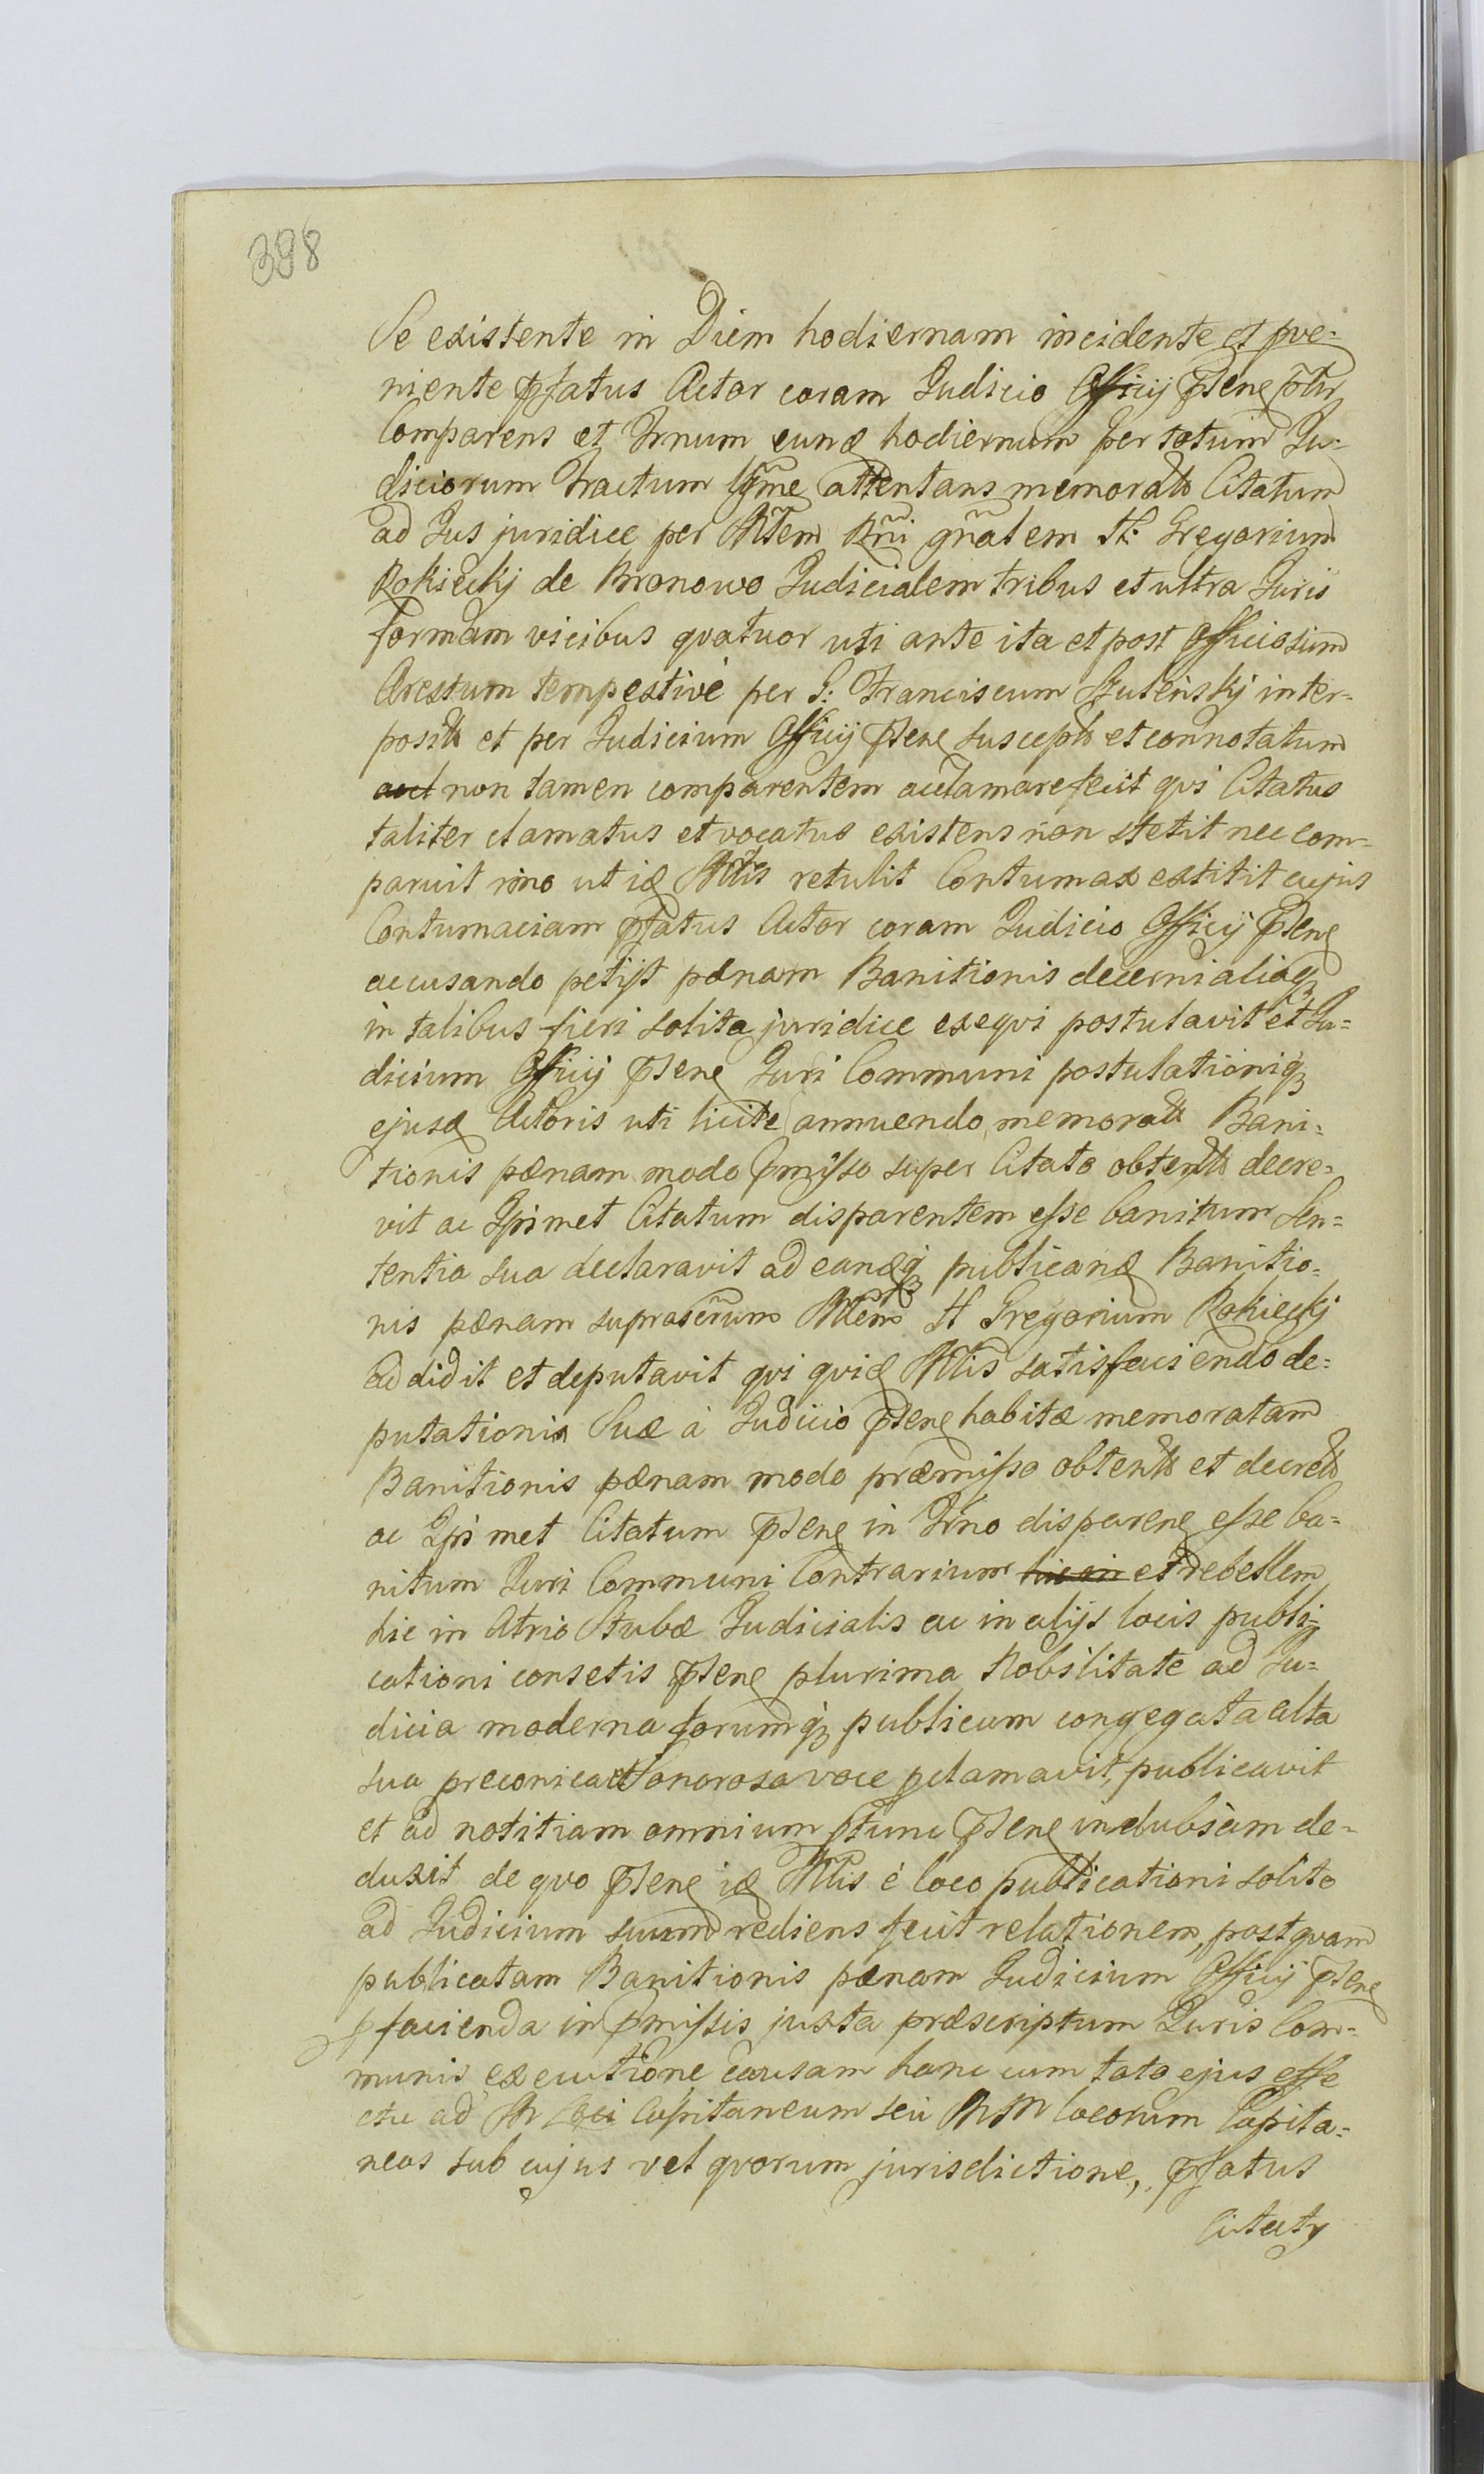 398
Se existente in Diem hodiernam incidente et pve-
niente pfatus Actor coram Judicio Officij psens pltr
Comparens et Trnum eund hodiernum per totum Ju-
diciorum Tractum lgme attentans memoratt Citatum
ad Jus juridice per Mtem Rñi gñalem H: Gregorium
Rokiccki de Bronowo Judicialem tribus et ultra Juris
formam vicibus qvatuor uti ante ita et post Officiosum
Arestum tempestivè per G: Franciscum Szulenskj inter-
positt et per Judicium Officij psens susceptt et connotatum
acl non tamen comparentem acclamare fecit qvi Citatus
taliter clamatus et vocatus existens non stetit nec com-
paruit imo ut id Mtis retulit Contumax extitit cujus
Contumaciam pfatus Actor coram Judicio Officij psens
accusando petijt pænam Banitionis decerni aliaq
in talibus fieri solita juridice exeqvi postulavit et Ju-
dicium Officij psens Juri Communi postulationiq
ejusd Actoris uti licite annuendo memoratt Bani-
tionis pænam modo pmisso super Citato obtentt decre-
vit ac Ipsmet Citatum disparentem esse banitum Sen-
tentia sua declaravit ad eandq publicand Banitio-
nis pænam suprascrum Mtem H Gregorium Rokiecki
addidit et deputavit qvi qvid Mtis satisfaciendo de-
putationis Suæ à Judicio psens habitæ memoratam
Banitionis pænam modo præmisso obtentt et decrett
ac Ipsmet Citatum psens in Trno disparens esse ba-
nitum Juri Communi Contrarium hic in et rebellem
hic in Atrio Stubæ Judicialis ac in alijs locis publi-
cationi consetis psens plurima Nobilitate ad Ju-
dicia moderna forumq publicum congegata alta
sua preconica et Sonorosa voce pclamavit, publicavit
et ad notitiam omnium ptunc psens indubiam de-
duxit de qvo psens id Mtis è loco publicationi solito
ad Judicium suum rediens fecit relationem, post qvam
publicatam Banitionis pænam Judicium Officij psens
p facienda in pmissis juxta præscriptum Juris Com-
munis executione causam hanc cum toto ejus effe
ctu ad M Loci Capitaneum seu MM locorum Capita-
neos sub cujus vel qvorum jurisdictione, pfatus
Citaty